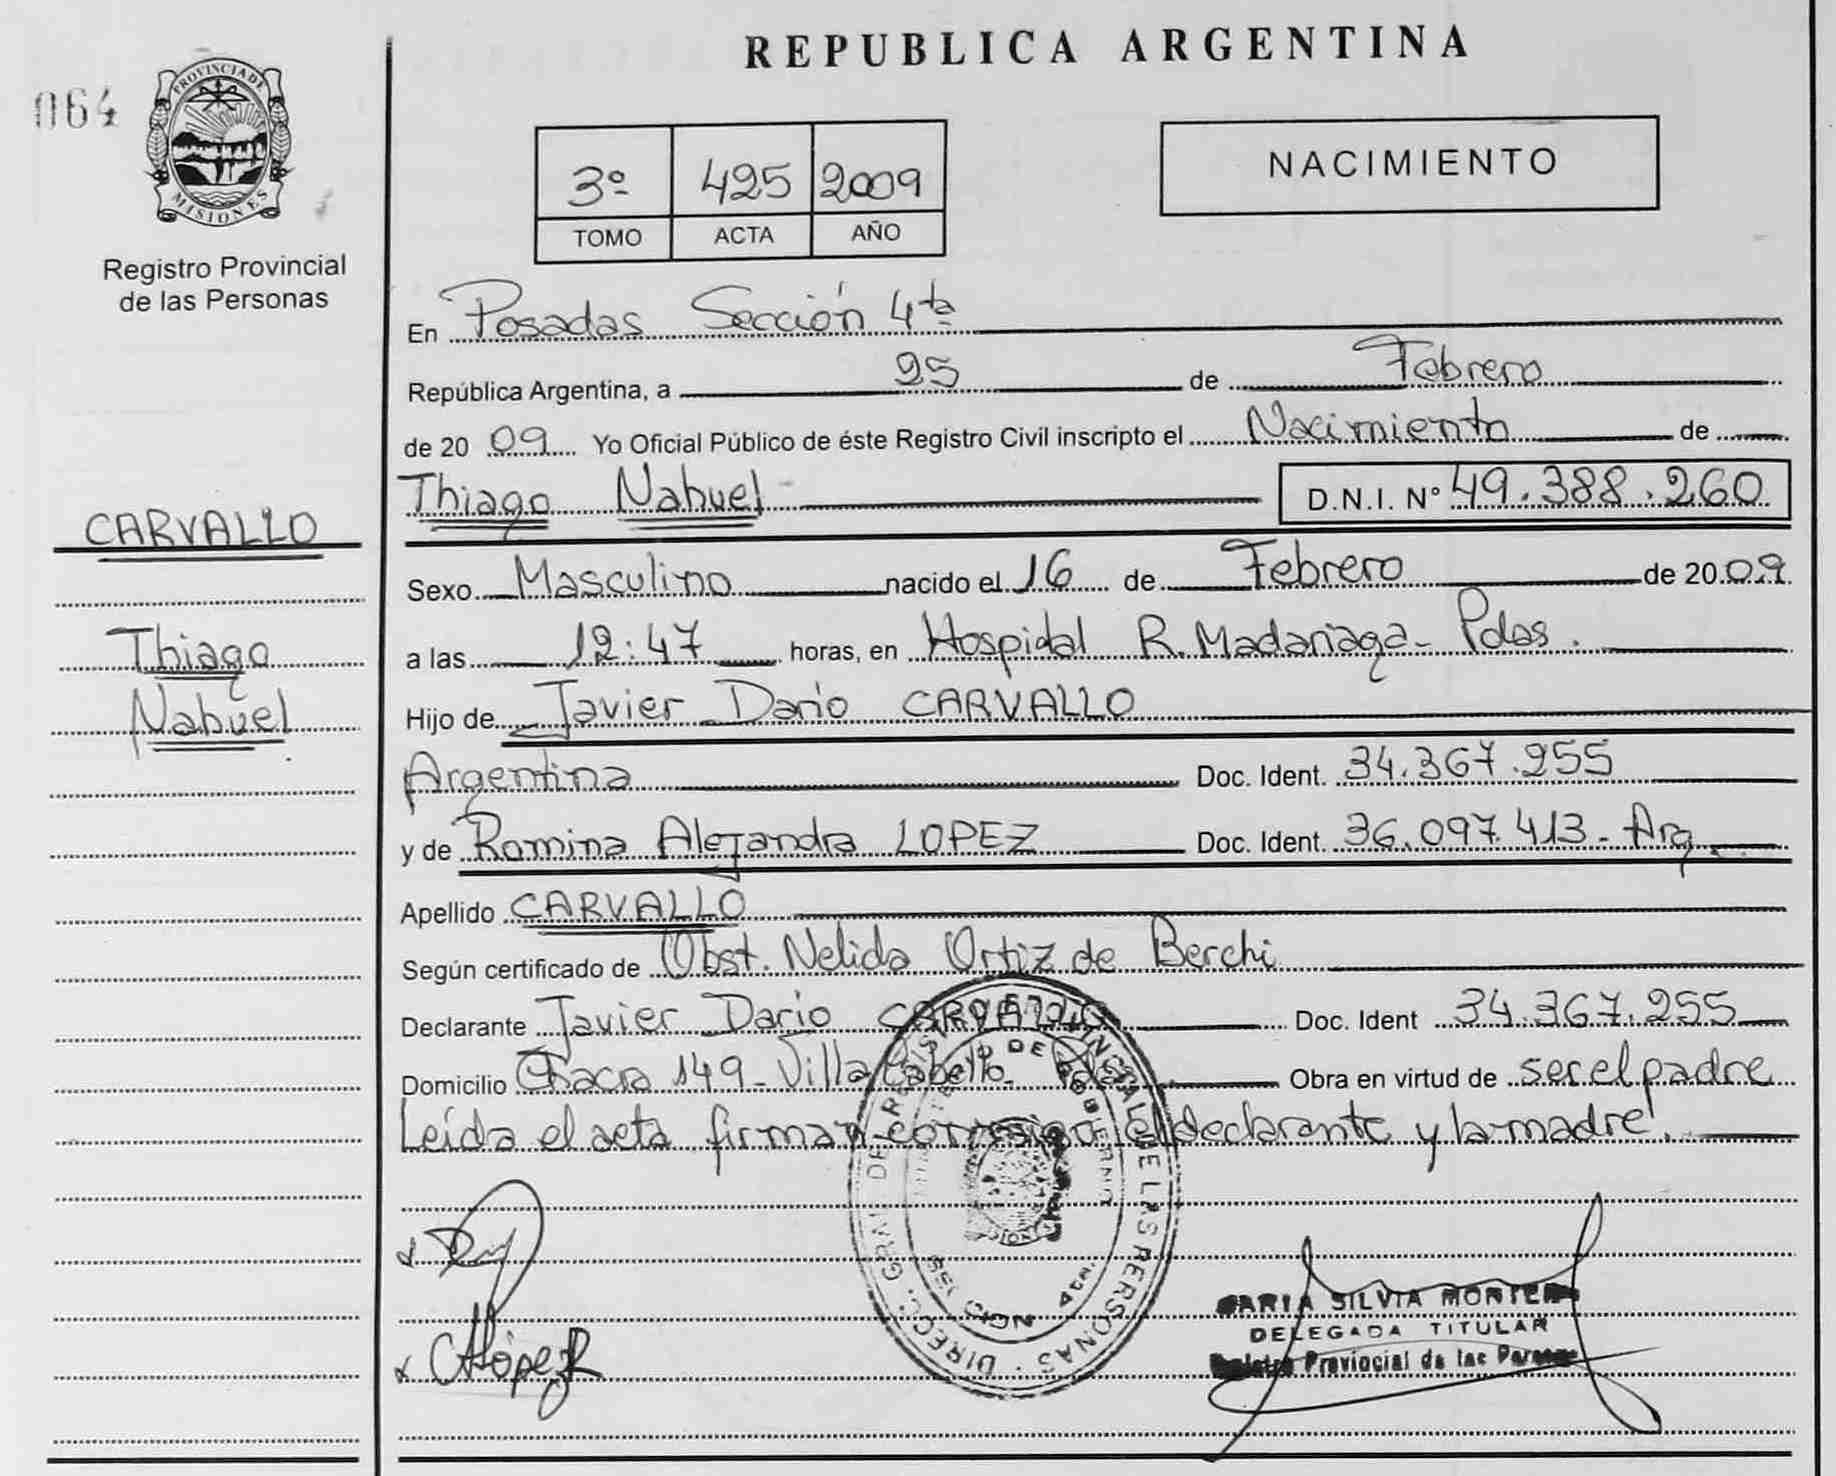 REPUBLICA ARGENTINA
064
PROVINCIA DE
MISIONES
Registro Provincial
de las Personas
3º 425 2009
TOMO ACTA AÑO
NACIMIENTO
En Posadas Sección 4ta
República Argentina, a 25 de Febrero
de 20 09 Yo Oficial Público de éste Registro Civil inscripto el Nacimiento de
Thiago Nahuel D.N.I. Nº 49.388.260
CARVALLO
Thiago
Nahuel
Sexo Masculino nacido el 16 de Febrero de 20 09
a las 12:47 horas, en Hospidal R. Madariaga - Pdas.
Hijo de Javier Dario CARVALLO
Argentina Doc. Ident. 34.367.255
y de Romina Alejandra LOPEZ Doc. Ident. 36.097.413 - Arg.
Apellido CARVALLO
Según certificado de Obst. Nelida Ortiz de Berchi
Declarante Javier Dario CARVALLO Doc. Ident 34.367.255
Domicilio Chacra 149 - Villa Cabello - Pdas Obra en virtud de ser el padre
Leída el acta firman conmigo el declarante y la madre.
DIRECC. GRAL DE REGISTRO PROVINCIAL DE LAS PERSONAS
MINISTERIO DE GOBIERNO
SECCION 4ta.
MARIA SILVIA
DELEGADA TITULAR
Registro Provincial de las Personas